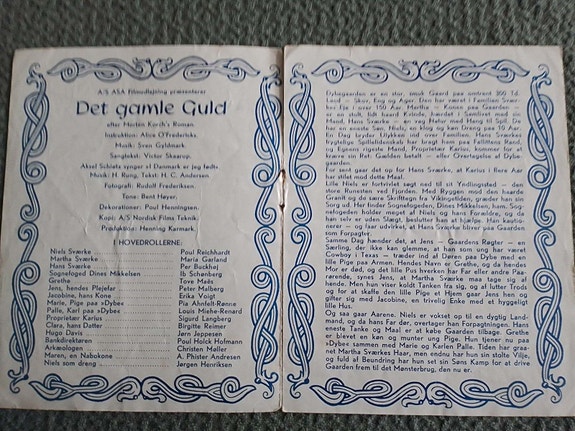 A/S ASA Filmudlejning præsenterer
Det gamle Guld
efter Morten Korch's Roman.
Instruktion: Alice O'Fredericks.
Musik: Sven Gyldmark.
Sangtekst: Victor Skaarup.
Aksel Schiøtz synger »I Danmark er jeg født«
Musik: H. Rung, Tekst: H. C. Andersen
Fotografi: Rudolf Frederiksen
Tone: Bent Høyer
Dekorationer: Poul Henningsen.
Kopi: A/S Nordisk Films Teknik
Produktion: Henning Karmark.
I HOVEDROLLERNE:
Niels Sværke Poul Reichhardt
Martha Sværke Maria Garland
Hans Sværke Per Buckhøj
Sognefoged Dines Mikkelsen Ib Schønberg
Grethe Tove Maës
Jens, hendes Plejefar Peter Malberg
Jacobine, hans Kone Erika Voigt
Marie, Pige paa »Dybe« Pia Ahnfelt-Rønne
Palle, Karl paa »Dybe« Louis Miehe-Renard
Proprietær Karius Sigurd Langberg
Clara, hans Datter Birgitte Reimer
Hugo Davis Jørn Jeppesen
Bankdirektøren Poul Holck Hofmann
Arkæologen Christen Møller
Maren, en Nabokone A. Phister Andresen
Niels som dreng Jørgen Henriksen
Dybegaarden er en stor, smuk Gaard paa omtrent 300 Td.
Land — Skov, Eng og Ager. Den har været i Familien Svær-
kes Eje i over 150 Aar. Martha — Konen paa Gaarden —
er en stolt, lidt haard Kvinde, hærdet i Samlivet med sin
Mand, Hans Sværke — en veg Natur med Hang til Spil. De
har en eneste Søn, Niels, en kløg og køn Dreng paa 10 Aar.
En Dag bryder Ulykken ind over Familien. Hans Sværkes
frygtelige Spillelidenskab har bragt ham Fallittens Rand,
og Egnens rigeste Mand, Proprietær Karius, kommer for at
kræve sin Ret: Gælden betalt — eller Overtagelse af Dybe-
gaarden.
For sent gaar det op for Hans Sværke, at Karius i flere Aar
har stilet mod dette Maal.
Lille Niels er fortvivlet søgt ned til sit Yndlingssted — den
store Runesten ved Fjorden. Med Ryggen mod den haarde
Granit og de sære Skrifttegn fra Vikingetiden, græder han sin
Sorg ud. Her finder Sognefogeden, Dines Mikkelsen, ham. Sog-
nefogeden holder meget af Niels og hans Forældre, og da
han selv er uden Slægt, beslutter han at hjælpe. Han kautio-
nerer — og faar udvirket, at Hans Sværke bliver paa Gaarden
som Forpagter.
Samme Dag hænder det, at Jens — Gaardens Røgter — en
Særling, der ikke kan glemme, at han som ung har været
Cowboy i Texas — træder ind af Døren paa Dybe med en
lille Pige paa Armen. Hendes Navn er Grethe, og da hendes
Mor er død, og det lille Pus hverken har Far eller andre Paa-
rørende, synes Jens, at Martha Sværke maa tage sig af
hende. Men hun viser koldt Tanken fra sig, og af lutter Trods
og for at skaffe den lille Pige et Hjem gaar Jens hen og
gifter sig med Jacobine, en trivelig Enke med et hyggeligt
lille Hus.
Og saa gaar Aarene. Niels er vokset op til en dygtig Land-
mand, og da hans Far dør, overtager han Forpagtningen. Hans
eneste Tanke og Maal er at købe Gaarden tilbage. Grethe
er blevet en køn og munter ung Pige. Hun tjener nu paa
»Dybe« sammen med Marie og Karlen Palle. Tiden har graa-
net Martha Sværkes Haar, men endnu har hun sin stolte Vilje,
og fuld af Beundring har hun set sin Søns Kamp for at drive
Gaarden frem til det Mønsterbrug, den nu er.